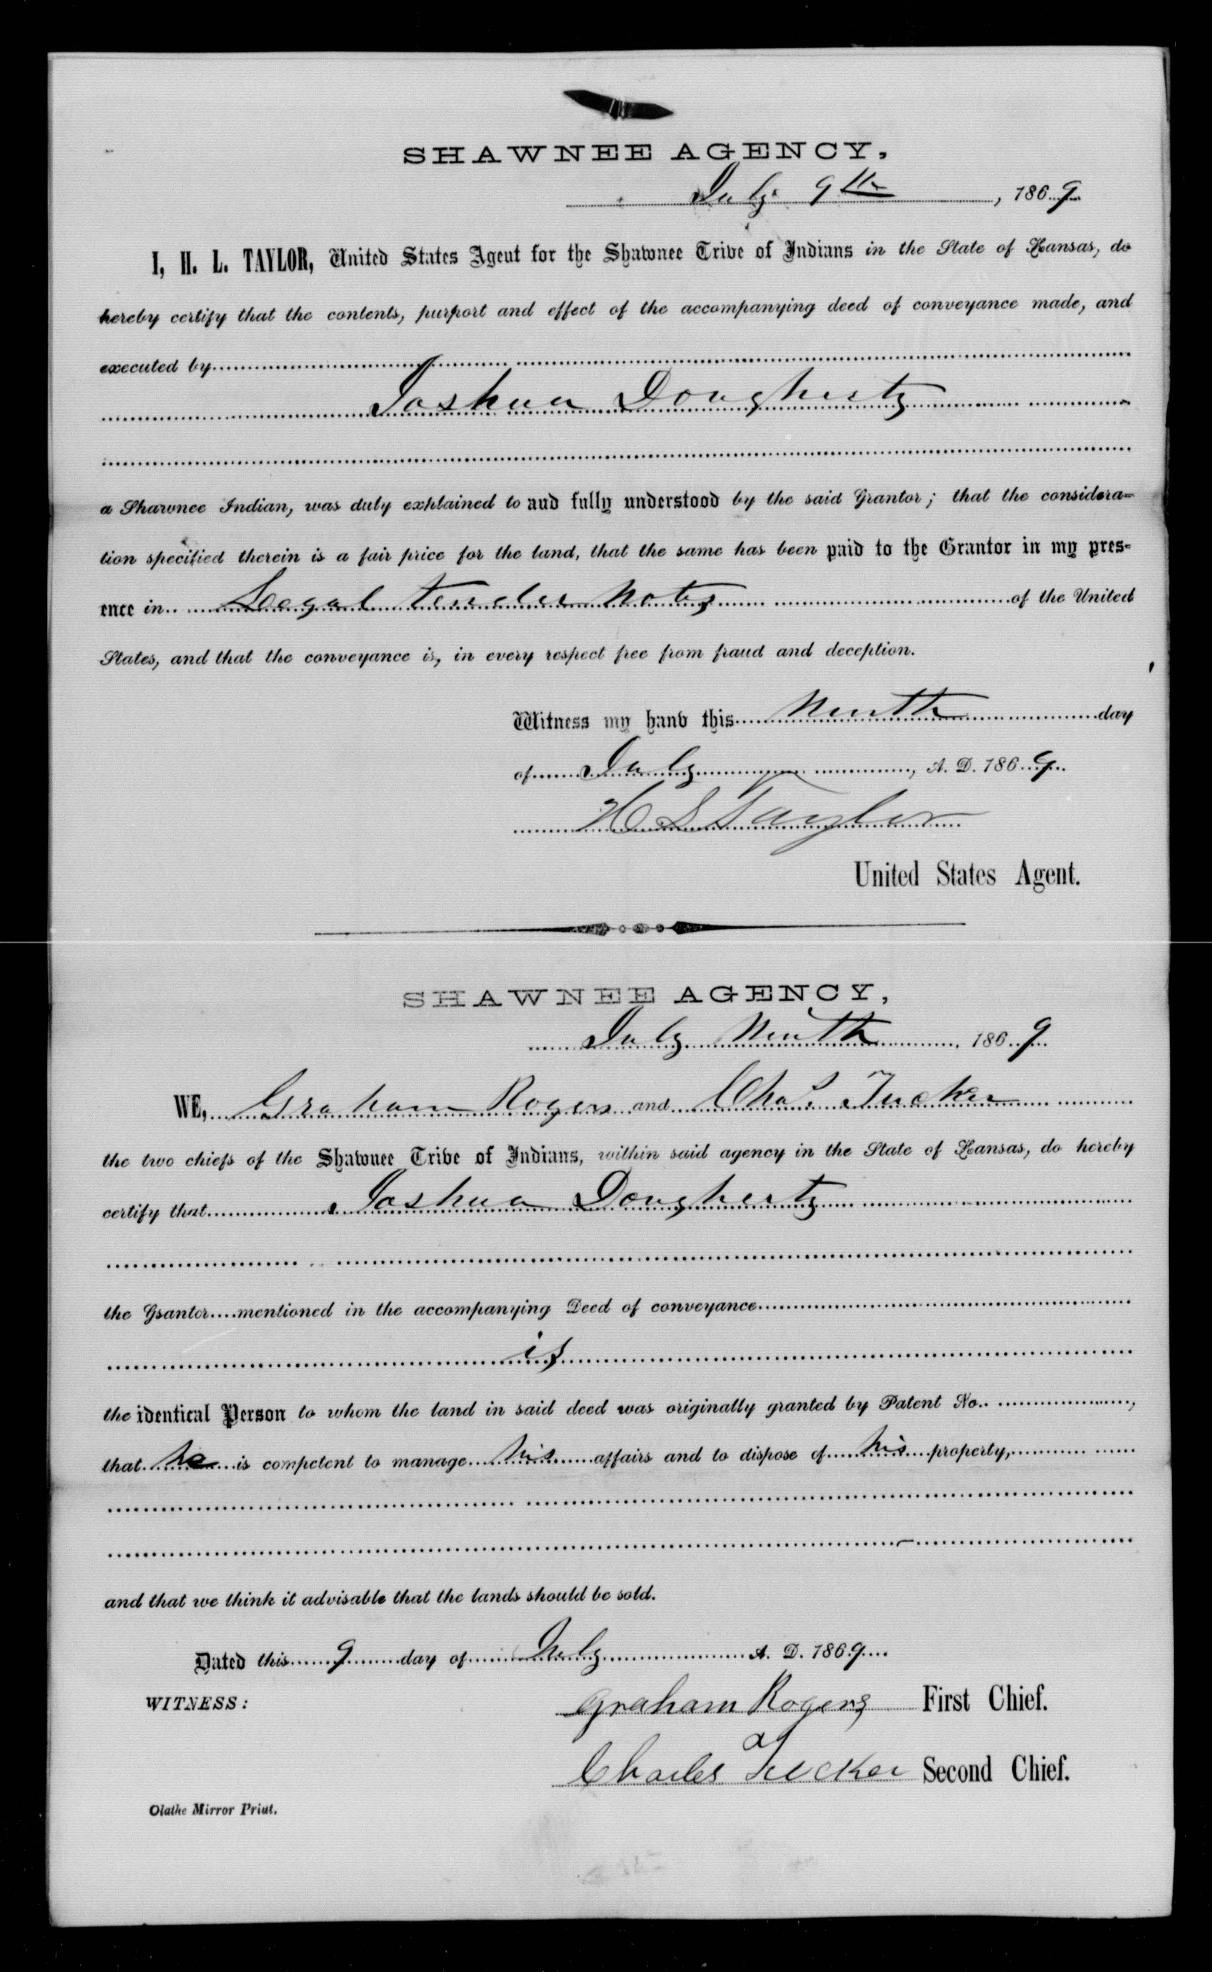 SHAWNEE AGENCY,
July 9th, 1869
I, H. L. TAYLOR, United States Agent for the Shawnee Tribe of Indians in the State of Kansas, do
hereby certify that the contents, purport and effect of the accompanying deed of conveyance made, and
executed by
Joshua Dougherty
a Shawnee Indian, was duly explained to and fully understood by the said Grantor; that the considera=
tion specified therein is a fair price for the land, that the same has been paid to the Grantor in my pres=
ence in Legal tender Notes of the United
States, and that the conveyance is, in every respect free from fraud and deception.
Witness my hand this Ninth day
of July, A. D. 1869
H L Taylor
United States Agent.
SHAWNEE AGENCY,
July Ninth, 1869
WE, Graham Rogers and Chas. Tucker
the two chiefs of the Shawnee Tribe of Indians, within said agency in the State of Kansas, do hereby
certify that Joshua Dougherty
the Grantor mentioned in the accompanying Deed of conveyance
is
the identical Person to whom the land in said deed was originally granted by Patent No. ,
that he is competent to manage his affairs and to dispose of his property,
and that we think it advisable that the lands should be sold.
Dated this 9 day of July A. D. 1869
WITNESS:
Graham Rogers First Chief.
Charles Tucker Second Chief.
Olathe Mirror Print.